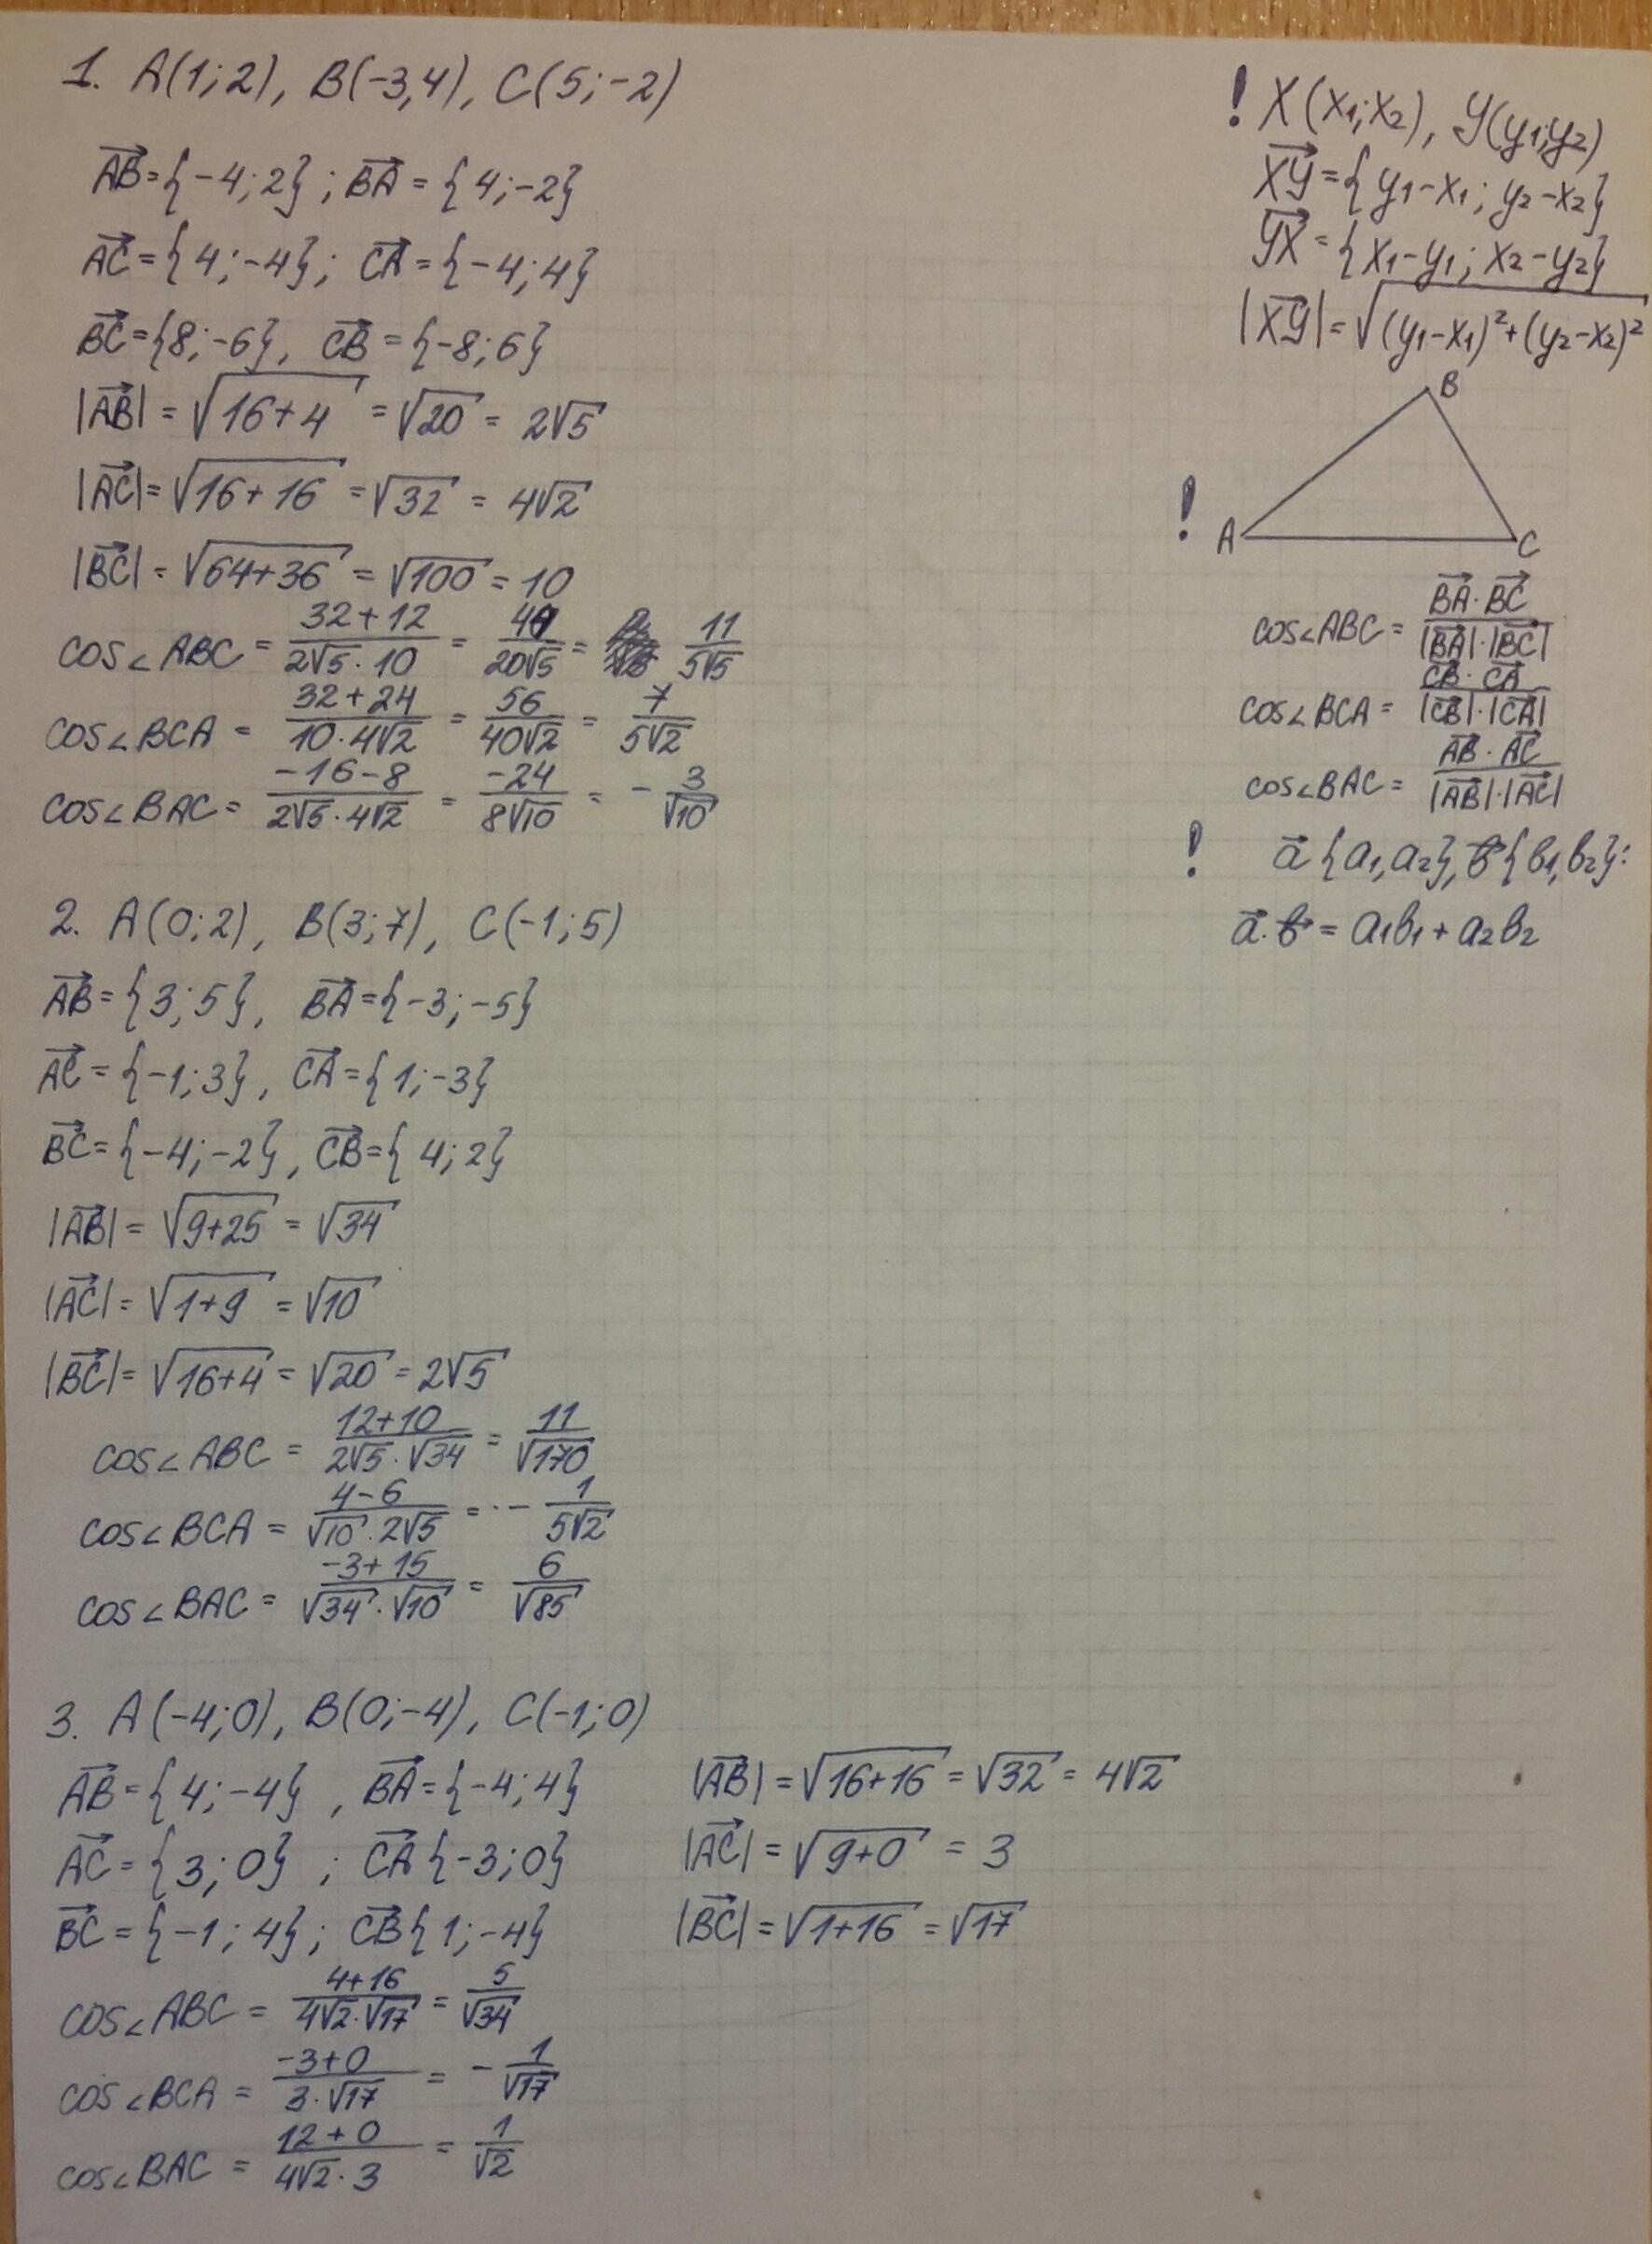 1. A(1;2), B(-3,4), C(5;-2)
AB→={-4;2}; BA→={4;-2}
AC→={4;-4}; CA→={-4;4}
BC→={8;-6}, CB→={-8;6}
|AB→|=√(16+4)=√20=2√5
|AC→|=√(16+16)=√32=4√2
|BC→|=√(64+36)=√100=10
cos∠ABC=(32+12)/(2√5·10)=44/(20√5)=11/(5√5)
cos∠BCA=(32+24)/(10·4√2)=56/(40√2)=7/(5√2)
cos∠BAC=(-16-8)/(2√5·4√2)=-24/(8√10)=-3/√10
2. A(0;2), B(3;7), C(-1;5)
AB→={3;5}, BA→={-3;-5}
AC→={-1;3}, CA→={1;-3}
BC→={-4;-2}, CB→={4;2}
|AB→|=√(9+25)=√34
|AC→|=√(1+9)=√10
|BC→|=√(16+4)=√20=2√5
cos∠ABC=(12+10)/(2√5·√34)=11/√170
cos∠BCA=(4-6)/(√10·2√5)=-1/(5√2)
cos∠BAC=(-3+15)/(√34·√10)=6/√85
3. A(-4;0), B(0;-4), C(-1;0)
AB→={4;-4}, BA→={-4;4}
AC→={3;0}; CA→{-3;0}
BC→={-1;4}; CB→{1;-4}
|AB→|=√(16+16)=√32=4√2
|AC→|=√(9+0)=3
|BC→|=√(1+16)=√17
cos∠ABC=(4+16)/(4√2·√17)=5/√34
cos∠BCA=(-3+0)/(3·√17)=-1/√17
cos∠BAC=(12+0)/(4√2·3)=1/√2
! X(x₁;x₂), Y(y₁;y₂)
XY→={y₁-x₁; y₂-x₂}
YX→={x₁-y₁; x₂-y₂}
|XY→|=√((y₁-x₁)²+(y₂-x₂)²)
B
! A C
cos∠ABC=(BA→·BC→)/(|BA→|·|BC→|)
cos∠BCA=(CB→·CA→)/(|CB→|·|CA→|)
cos∠BAC=(AB→·AC→)/(|AB→|·|AC→|)
! a→{a₁,a₂}, b→{b₁,b₂}:
a→·b→=a₁b₁+a₂b₂